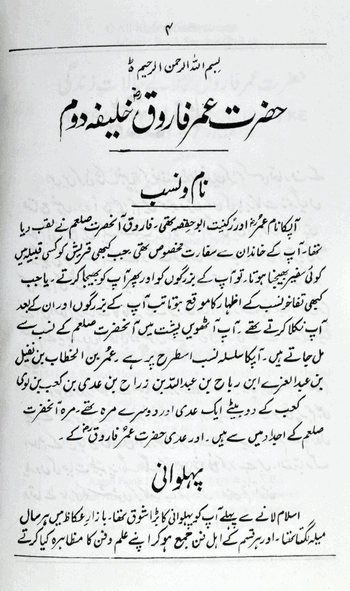 ۴
بسم اللہ الرحمن الرحیم ط
حضرت عمر فاروقؓ خلیفہ دوم
نام و نسب
آپ کا نام عمرؓ اور کنیت ابو حفصہ تھی۔ فاروق آنحضرت صلعم نے لقب دیا
تھا۔ آپ کے خاندان سے سفارت مخصوص تھی۔ جب کبھی قریش کو کسی قبیلہ میں
کوئی سفیر بھیجنا ہوتا۔ تو آپ کے بزرگوں کو اور پھر آپ کو بھیجا کرتے۔ یا جب
کبھی تفاخر نسب کے اظہار کا موقع ہوتا تب آپ کے بزرگوں اور ان کے بعد
آپ نکلا کرتے تھے۔ آپ آٹھویں پشت میں آنحضرت صلعم کے نسب سے
مل جاتے ہیں۔ آپکا سلسلہ نسب اسطرح پر ہے۔ عمرؓ بن الخطاب بن نفیل
بن عبدالعزے ابن رباح بن عبداللہ بن زراح بن عدی بن کعب بن لوی
کعب کے دو بیٹے ایک عدی اور دوسرے مرہ تھے۔ مرہ آنحضرت
صلعم کے اجداد میں سے ہیں۔ اور عدی حضرت عمر فاروقؓ کے۔
پہلوانی
اسلام لانے سے پہلے آپ کو پہلوانی کا بڑا شوق تھا۔ بازار عکاظ میں ہر سال
میلہ لگتا تھا۔ اور ہر قسم کے اہل فن جمع ہو کر اپنے علم و فن کا مظاہرہ کیا کرتے